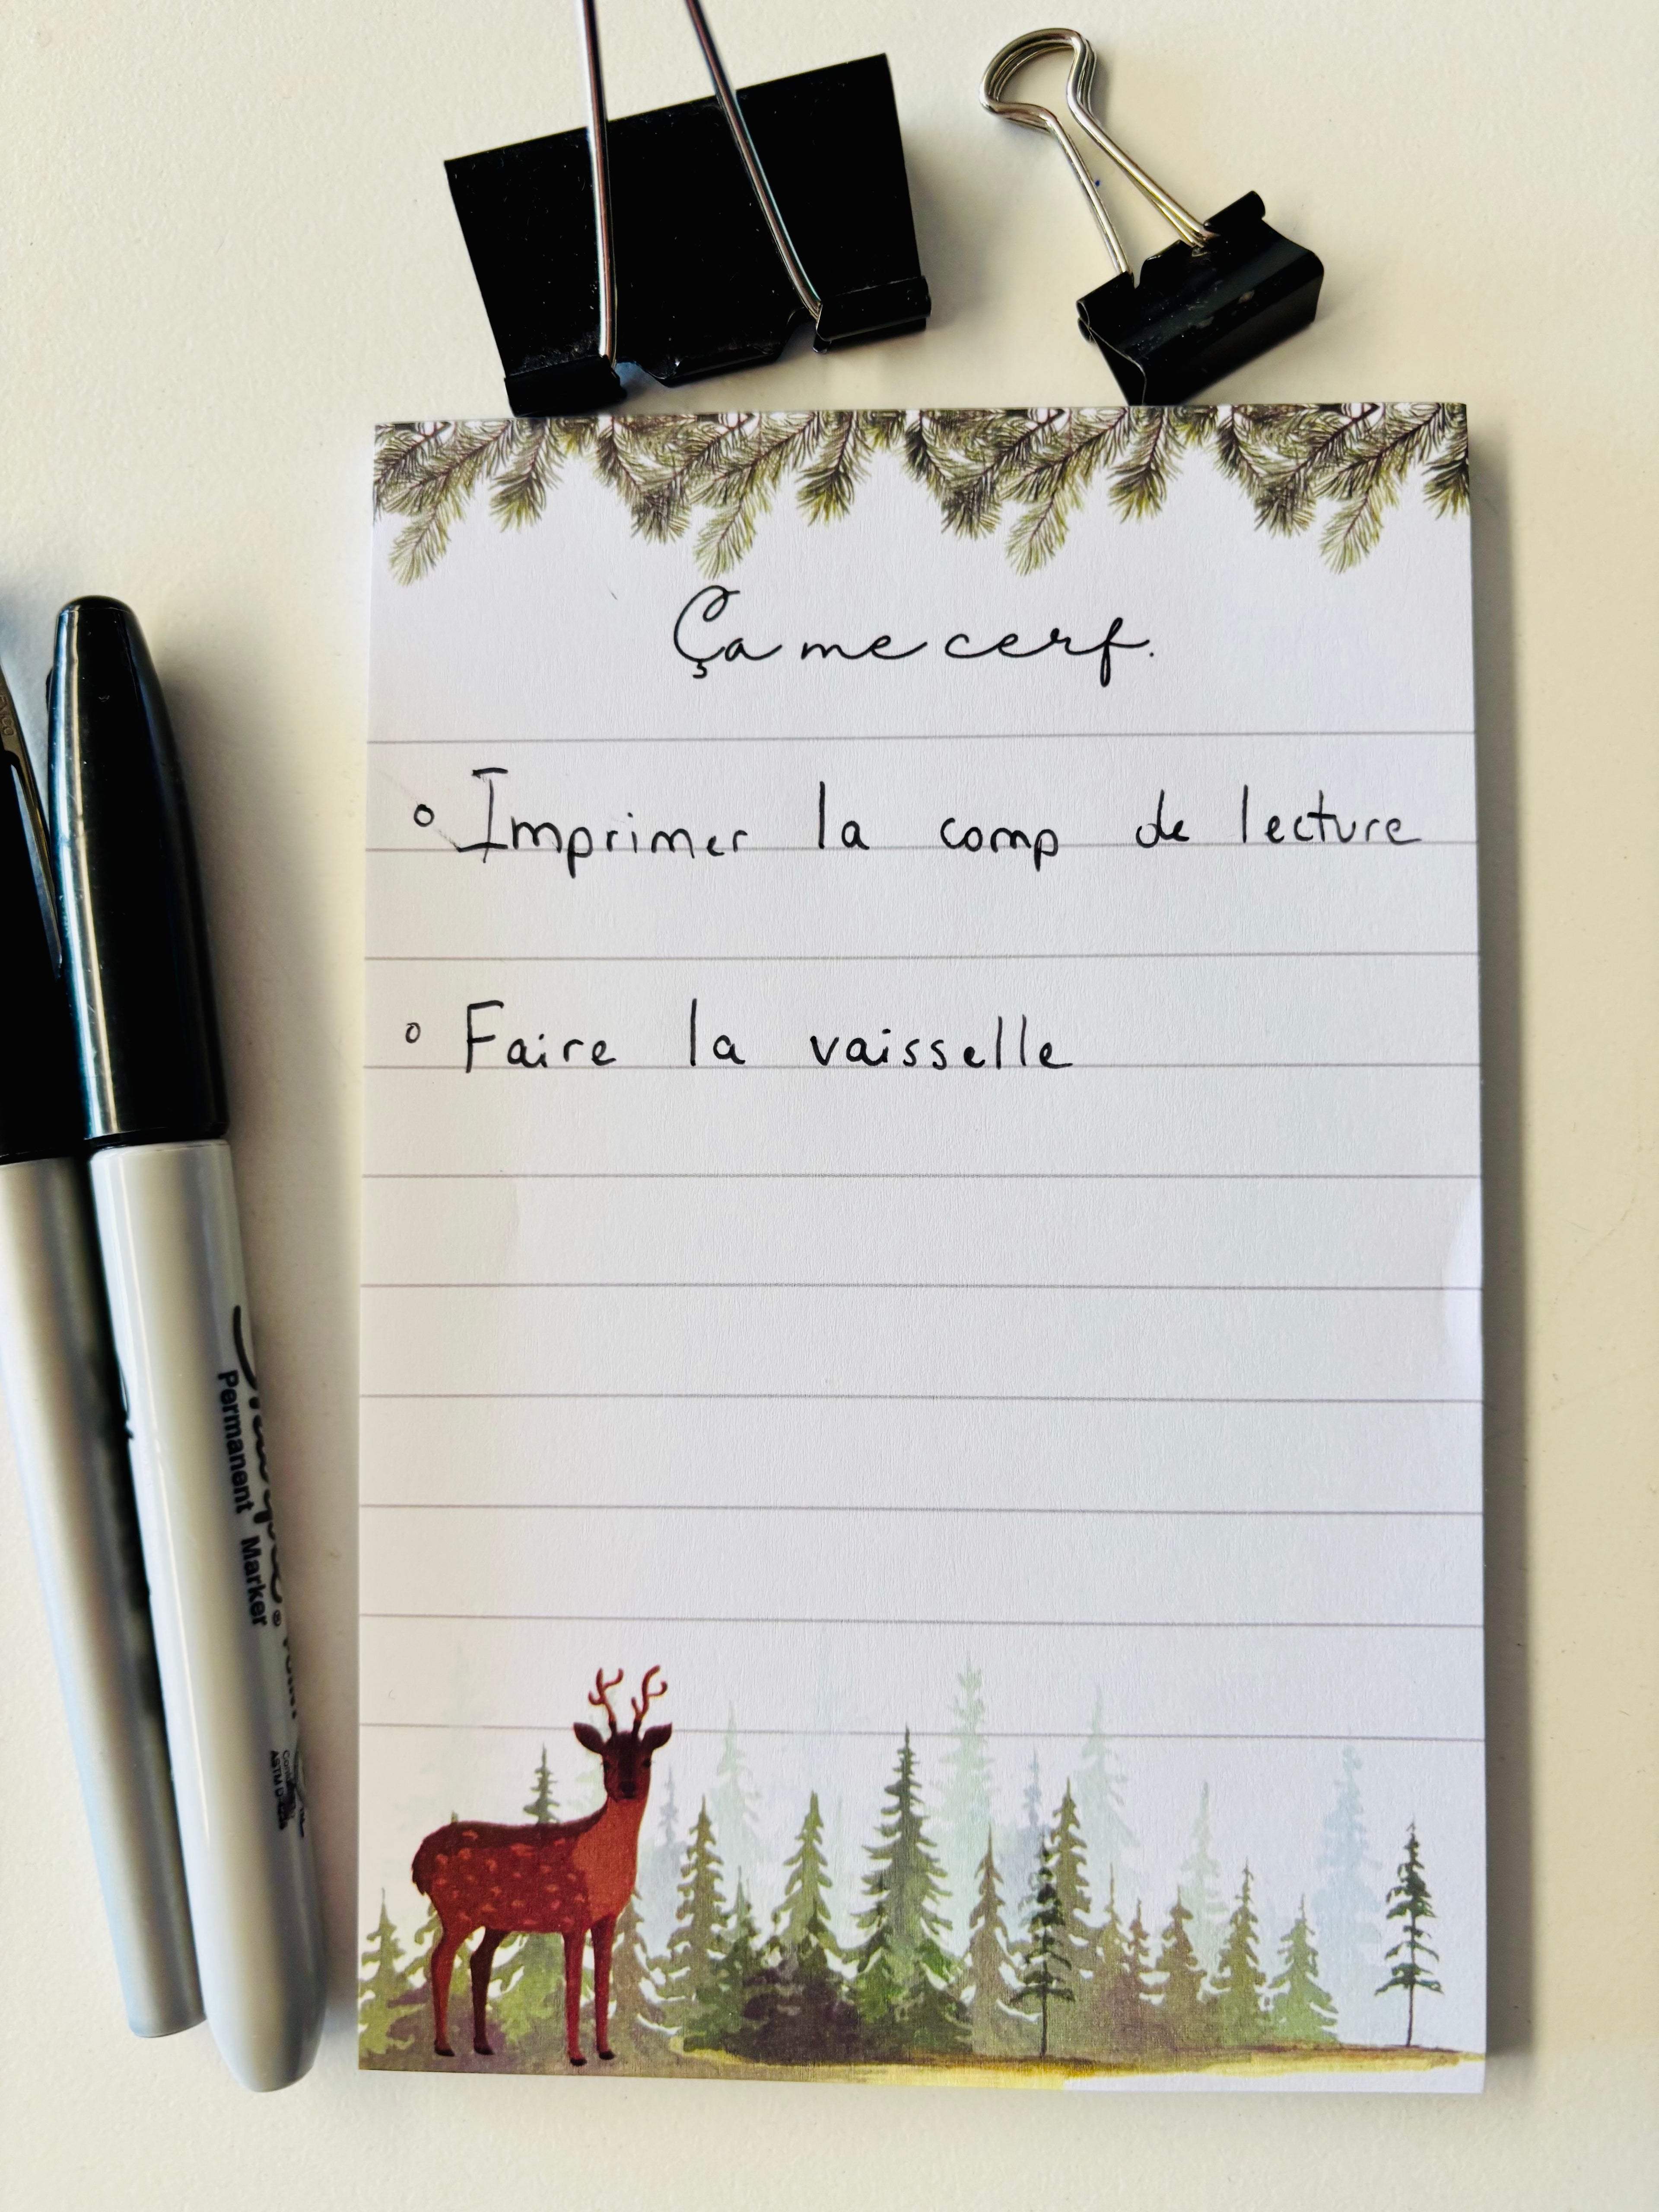 Ça me cerf.
o Imprimer la comp de lecture
o Faire la vaisselle
Permanent Marker